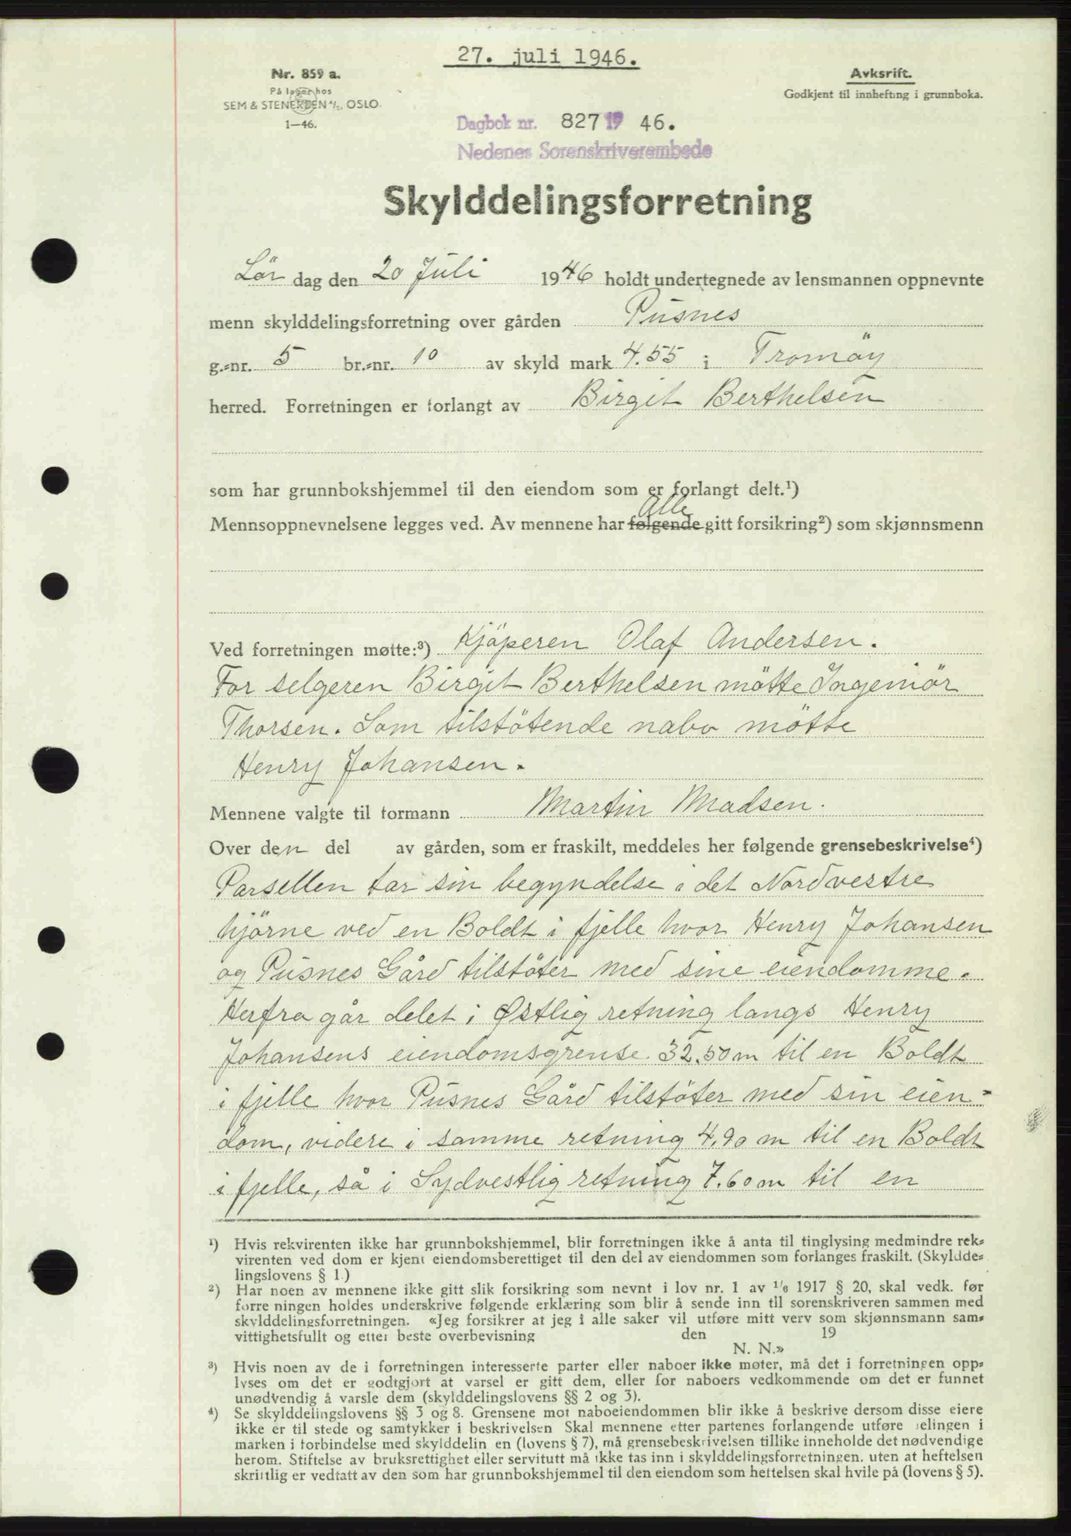 27. juli 1946.
Nr. 859 a.
På lager hos
SEM & STENERSEN A/S, OSLO.
1—46.
Avksrift.
Godkjent til innhefting i grunnboka.
Dagbok nr. 827 19 46.
Nedenes Sorenskriverembede
Skylddelingsforretning
Lör dag den 20 Juli 1946 holdt undertegnede av lensmannen oppnevnte
menn skylddelingsforretning over gården Pusnes
g.-nr. 5 br.-nr. 10 av skyld mark 4.55 i Tromöy
herred. Forretningen er forlangt av Birgit Berthelsen
som har grunnbokshjemmel til den eiendom som er forlangt delt.¹)
Alle
Mennsoppnevnelsene legges ved. Av mennene har følgende gitt forsikring²) som skjønnsmenn
Ved forretningen møtte:³) Kjöperen Olaf Andersen.
For selgeren Birgit Berthelsen mötte Ingeniör
Thorsen. Som tilstötende nabo mötte
Henry Johansen.
Mennene valgte til formann Martin Madsen.
Over den del av gården, som er fraskilt, meddeles her følgende grensebeskrivelse⁴)
Parsellen tar sin begyndelse i det Nordvestre
hjörne ved en Boldt i fjelle hvor Henry Johansen
og Pusnes Gård tilstöter med sine eiendomme.
Herfra går delet i Østlig retning langs Henry
Johansens eiendomsgrense. 32.50 m til en Boldt
i fjelle hvor Pusnes Gård tilstöter med sin eien-
dom, videre i samme retning 4,90 m til en Boldt
i fjelle, så i Sydvestlig retning 7.60 m til en
¹) Hvis rekvirenten ikke har grunnbokshjemmel, blir forretningen ikke å anta til tinglysing medmindre rek-
virenten ved dom er kjent eiendomsberettiget til den del av eiendommen som forlanges fraskilt. (Skyldde-
lingslovens § 1.)
²) Har noen av mennene ikke gitt slik forsikring som nevnt i lov nr. 1 av 1/6 1917 § 20, skal vedk. før
forretningen holdes underskrive følgende erklæring som blir å sende inn til sorenskriveren sammen med
skylddelingsforretningen. «Jeg forsikrer at jeg i alle saker vil utføre mitt verv som skjønnsmann sam-
vittighetsfullt og etter beste overbevisning den 19
N. N.»
³) Hvis noen av de i forretningen interesserte parter eller naboer ikke møter, må det i forretningen opp-
lyses om det er godtgjort at varsel er gitt dem, eller for naboers vedkommende om det er funnet
unødvendig å varsle dem (skylddelingslovens §§ 2 og 3).
⁴) Se skylddelingslovens §§ 3 og 8. Grensene mot naboeiendommen blir ikke å beskrive dersom disse eiere
ikke er til stede og samtykker i beskrivelsen Skal mennene etter partenes forlangende utføre delingen i
marken i forbindelse med skylddelin en (lovens § 7), må grensebeskrivelsen tillike inneholde det nødvendige
herom. Stiftelse av bruksrettighet eller servitutt må ikke tas inn i skylddelingsforretningen, uten at heftelsen
skriftlig er vedtatt av den som har grunnbokshjemmel til den eiendom som heftelsen skal hvile på (lovens § 5).